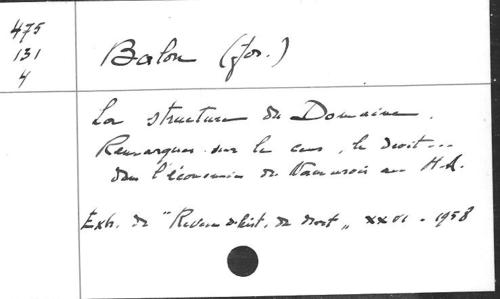 475
131
4
Balon (Jos.)
La structure du Domaine.
Remarques sur le cens, le droit...
dans l'économie du Namurois au M-A.
Extr. de "Revue d'hist. de droit" XXVI - 1958